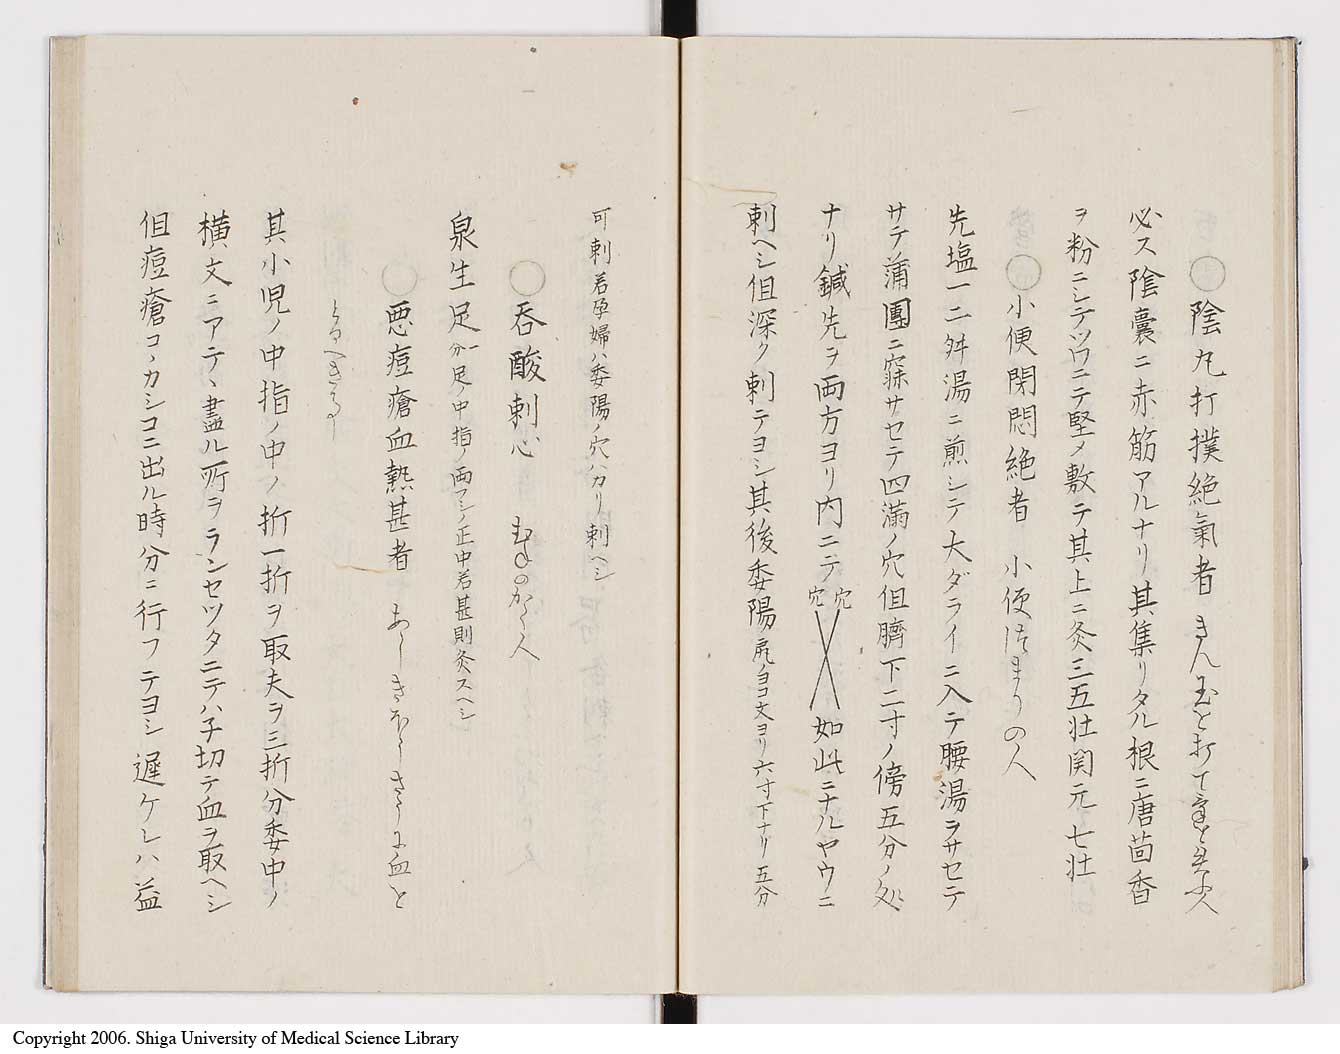 ◯陰丸打撲絶氣者 きん玉を打て氣を失ふ人
必ス陰嚢ニ赤筋アルナリ其集リタル根ニ唐茴香
ヲ粉ニシテツワニテ堅メ敷テ其上ニ灸三五壮関元七壮
◯小便閉悶絶者 小便つまりの人
先塩一二舛湯ニ煎シテ大ダライニ入テ腰湯ヲサセテ
サテ蒲團ニ寐サセテ四満ノ穴但臍下二寸ノ傍五分ノ処
ナリ鍼先ヲ両方ヨリ内ニテ 穴穴 如此ニナルヤウニ
刺ヘシ但深ク刺テヨシ其後委陽尻ノヨコ文ヨリ六寸下ナリ五分
可刺若孕婦ハ委陽ノ穴ハカリ刺ヘシ
◯呑酸刺心 むねのかく人
泉生足 一分足ノ中指ノ両フシノ正中若甚則灸スヘシ
◯悪痘瘡血熱甚者 あしきほうさうに血を
とるへき事
其小児ノ中指ノ中ノ折一折ヲ取夫ヲ三折分委中ノ
横文ニアテヽ盡ル所ヲランセツタニテハ子切テ血ヲ取ヘシ
但痘瘡コヽカシコニ出ル時分ニ行フテヨシ遅ケレハ益
Copyright 2006. Shiga University of Medical Science Library